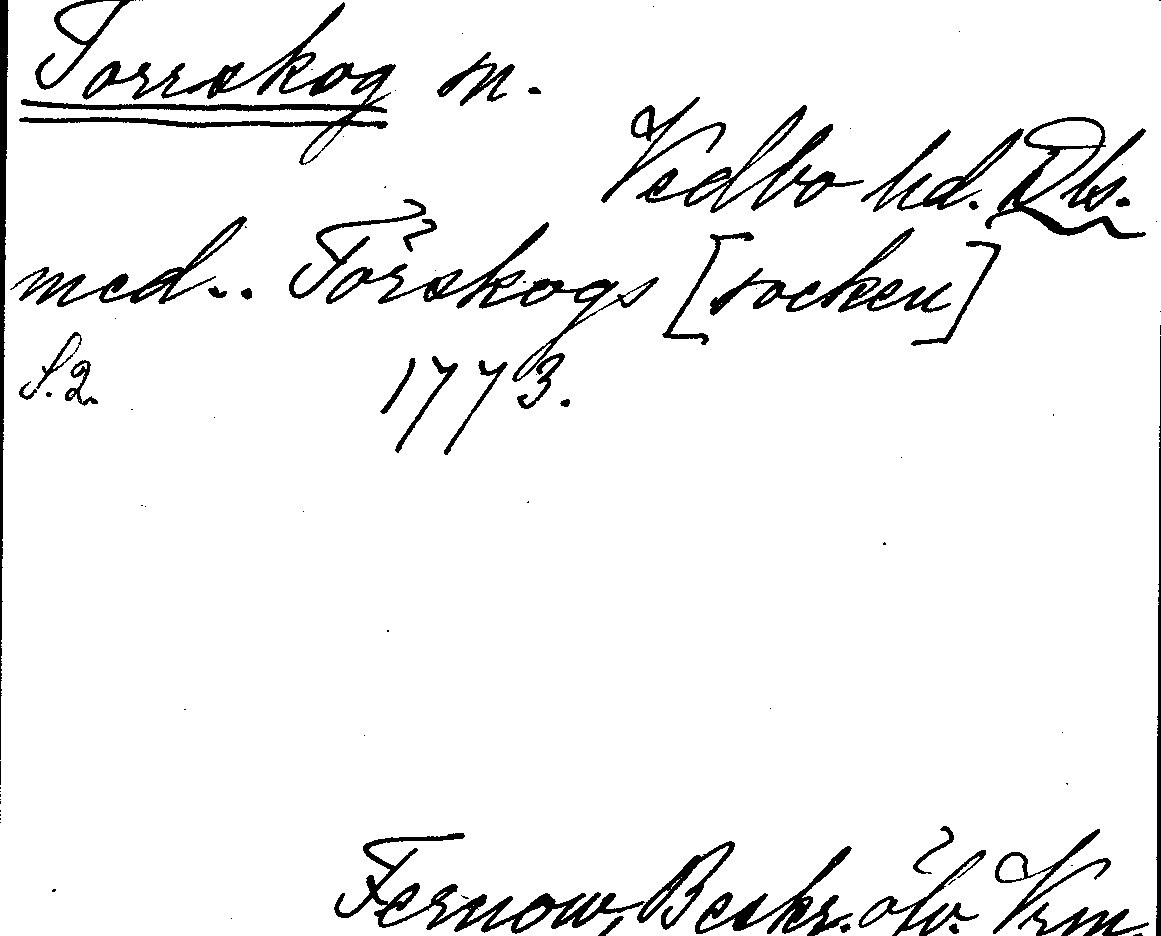 Torrskog sn.
Vedbo hd. Dls.
med.. Törskogs [socken]
S. 2. 1773.
Fernow, Beskr. öfv. Vrm.